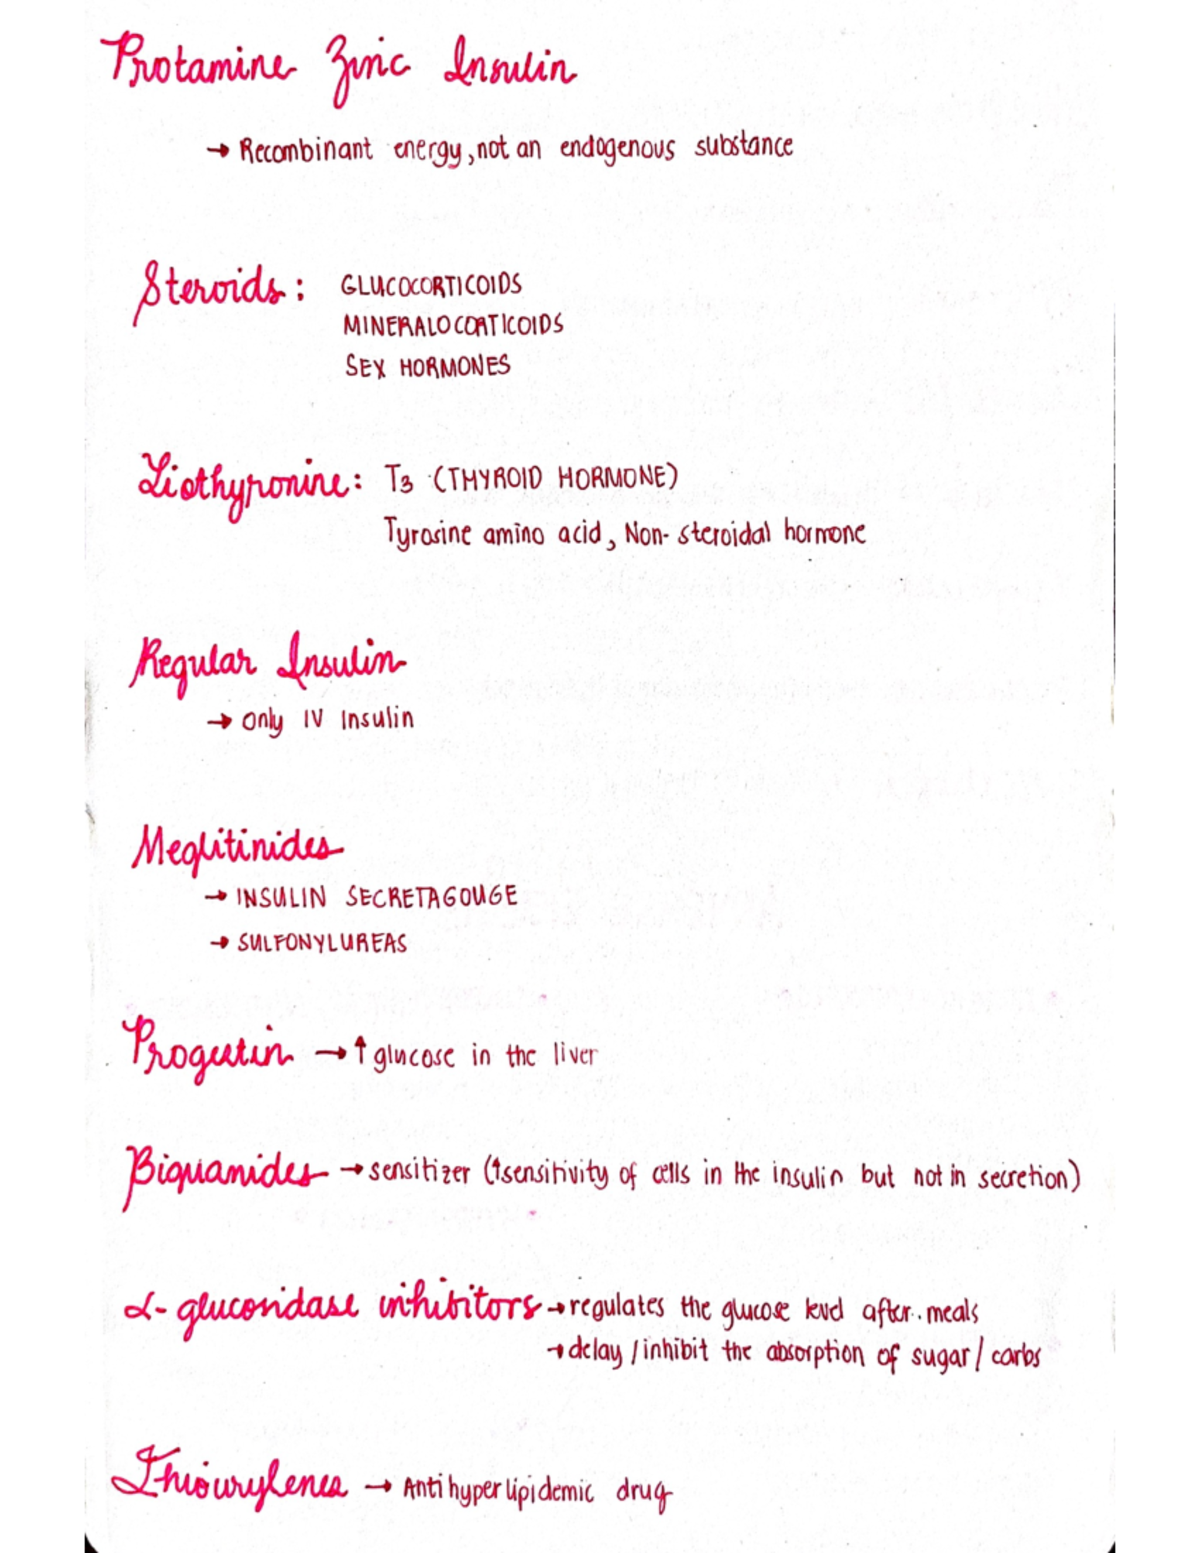 Protamine Zinc Insulin
→ Recombinant energy, not an endogenous substance
Steroids: GLUCOCORTICOIDS
MINERALOCORTICOIDS
SEX HORMONES
Liothyronine: T3 (THYROID HORMONE)
Tyrosine amino acid, Non-steroidal hormone
Regular Insulin
→ Only IV Insulin
Meglitinides
→ INSULIN SECRETAGOUGE
→ SULFONYLUREAS
Progestin → ↑ glucose in the liver
Biguanides → sensitizer (↑sensitivity of cells in the insulin but not in secretion)
α-glucosidase inhibitors → regulates the glucose level after meals
→ delay / inhibit the absorption of sugar / carbs
Thiourylenes → Antihyperlipidemic drug